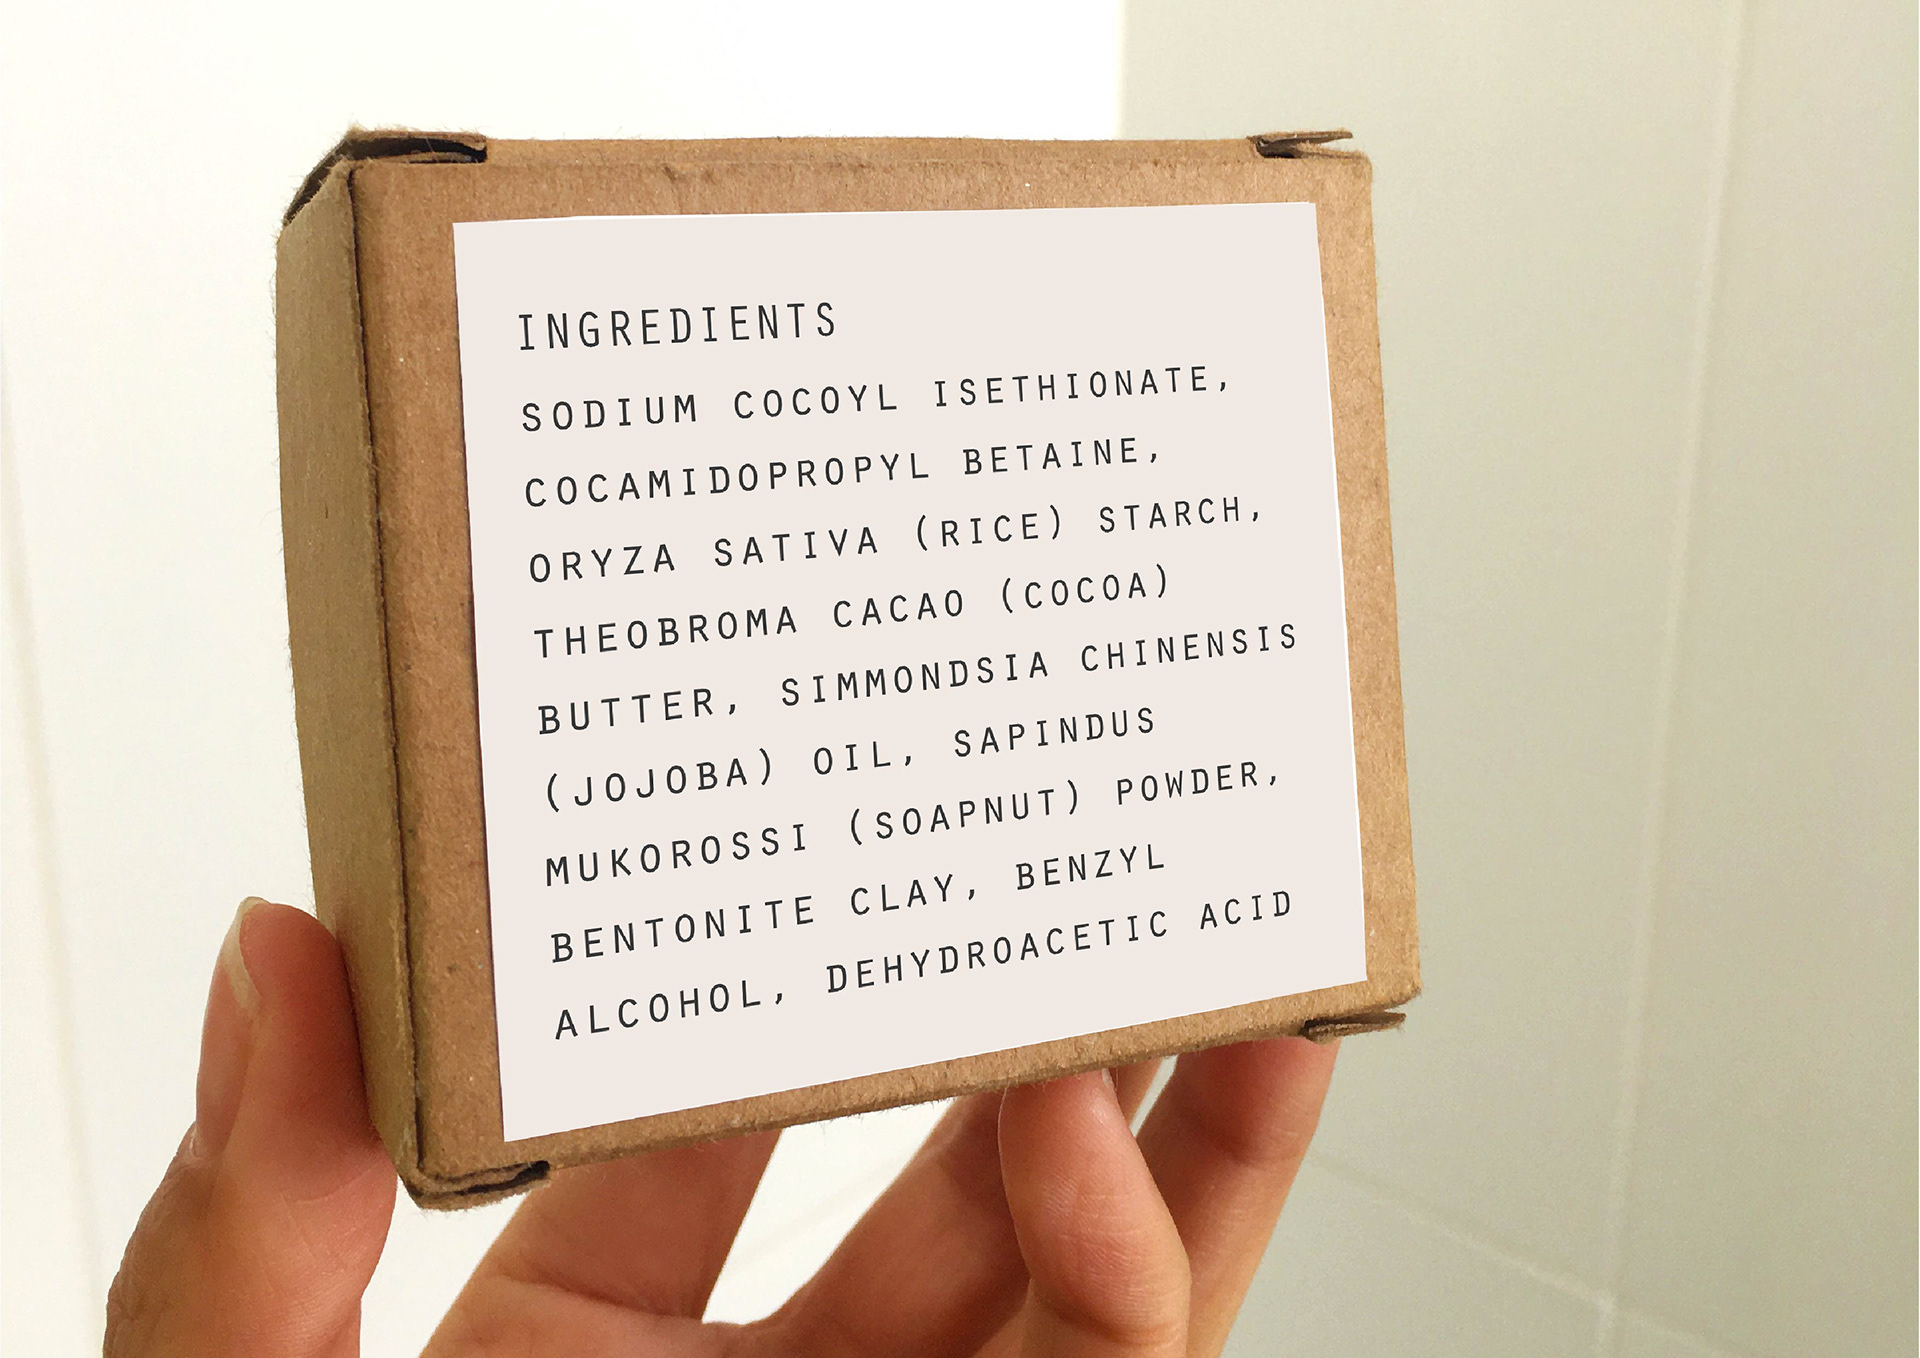 INGREDIENTS
SODIUM COCOYL ISETHIONATE,
COCAMIDOPROPYL BETAINE,
ORYZA SATIVA (RICE) STARCH,
THEOBROMA CACAO (COCOA)
BUTTER, SIMMONDSIA CHINENSIS
(JOJOBA) OIL, SAPINDUS
MUKOROSSI (SOAPNUT) POWDER,
BENTONITE CLAY, BENZYL
ALCOHOL, DEHYDROACETIC ACID